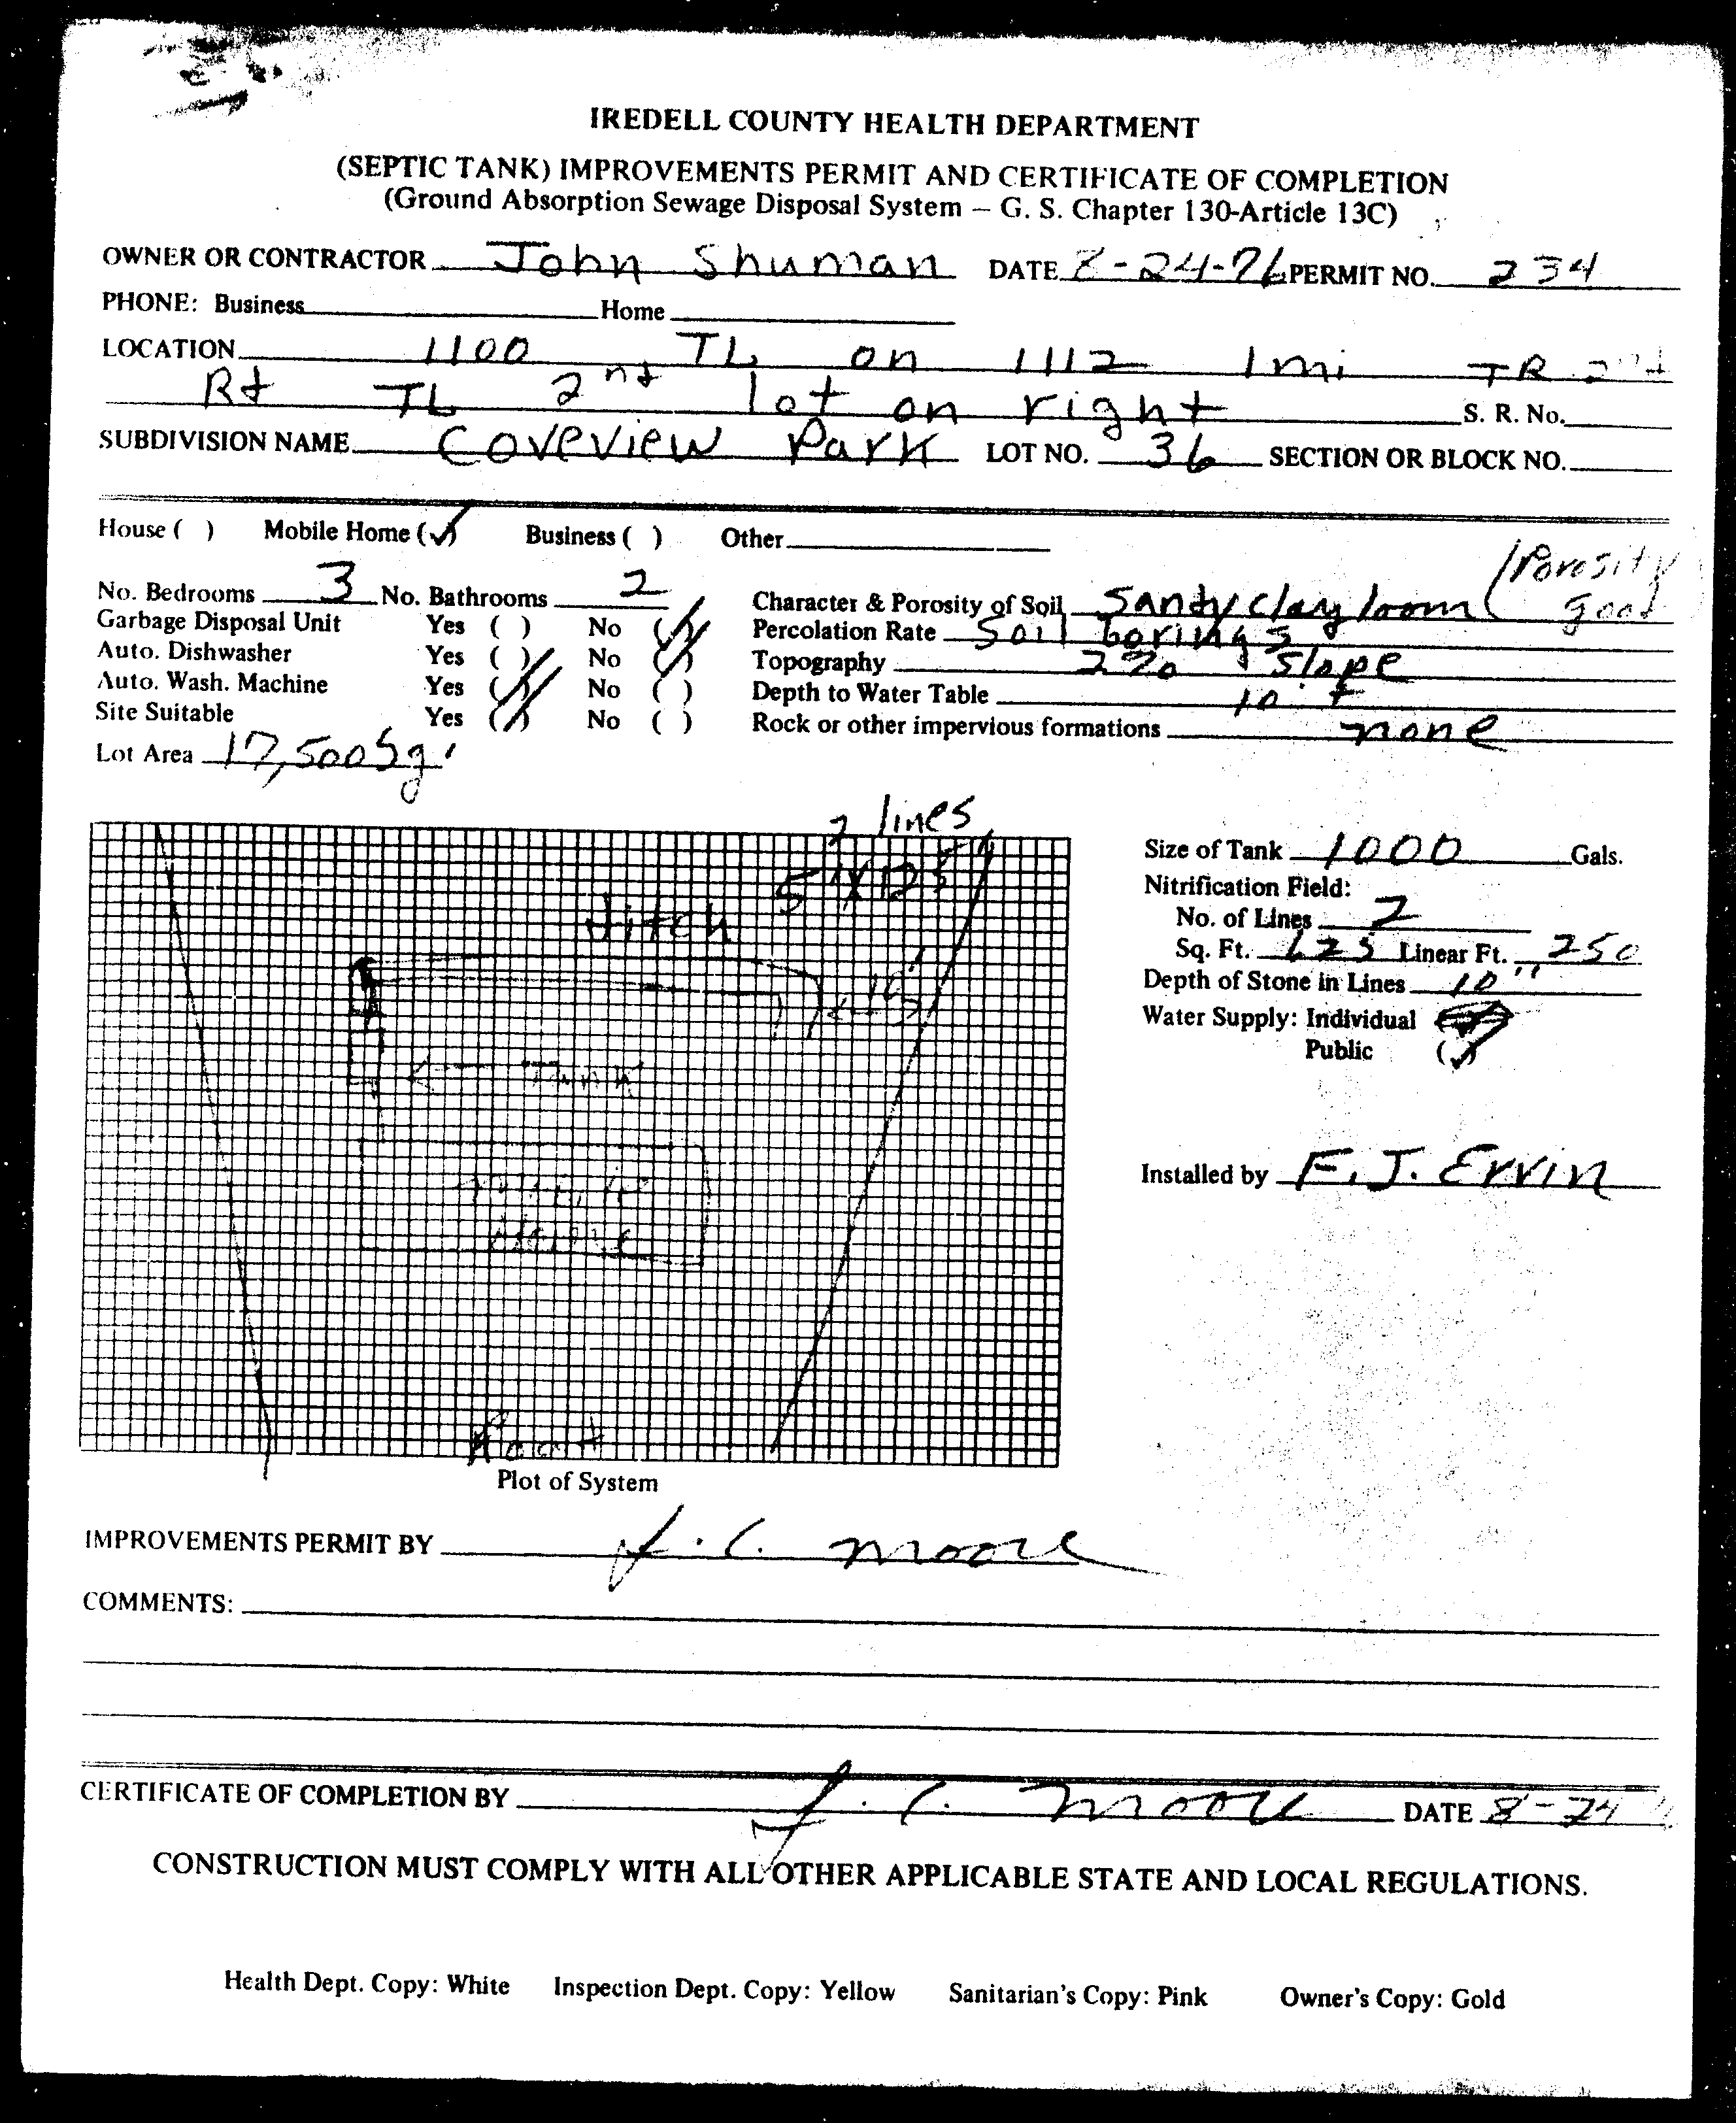 IREDELL COUNTY HEALTH DEPARTMENT
(SEPTIC TANK) IMPROVEMENTS PERMIT AND CERTIFICATE OF COMPLETION
(Ground Absorption Sewage Disposal System – G. S. Chapter 130-Article 13C)
OWNER OR CONTRACTOR John Shuman DATE 8-24-76 PERMIT NO. 234
PHONE: Business Home
LOCATION 1100 TL on 1112 1 mi TR 2nd
Rd TL 2nd lot on right S. R. No.
SUBDIVISION NAME Coveview Park LOT NO. 36 SECTION OR BLOCK NO.
House ( ) Mobile Home (✓) Business ( ) Other
(Porosity
No. Bedrooms 3 No. Bathrooms 2 Character & Porosity of Soil Sandy clay loam good
Garbage Disposal Unit Yes ( ) No (✓) Percolation Rate Soil borings
Auto. Dishwasher Yes ( ) No (✓) Topography 2% Slope
Auto. Wash. Machine Yes (✓) No ( ) Depth to Water Table 10' +
Site Suitable Yes (✓) No ( ) Rock or other impervious formations none
Lot Area 17,500 Sq '
2 lines
5' X 125'
ditch
10'
Tank
Mobile
Home
Road
Plot of System
Size of Tank 1000 Gals.
Nitrification Field:
No. of Lines 2
Sq. Ft. 625 Linear Ft. 250
Depth of Stone in Lines 10"
Water Supply: Individual
Public (✓)
Installed by F. J. Ervin
IMPROVEMENTS PERMIT BY J. C. Moore
COMMENTS:
CERTIFICATE OF COMPLETION BY J. C. Moore DATE 8-24
CONSTRUCTION MUST COMPLY WITH ALL OTHER APPLICABLE STATE AND LOCAL REGULATIONS.
Health Dept. Copy: White Inspection Dept. Copy: Yellow Sanitarian's Copy: Pink Owner's Copy: Gold